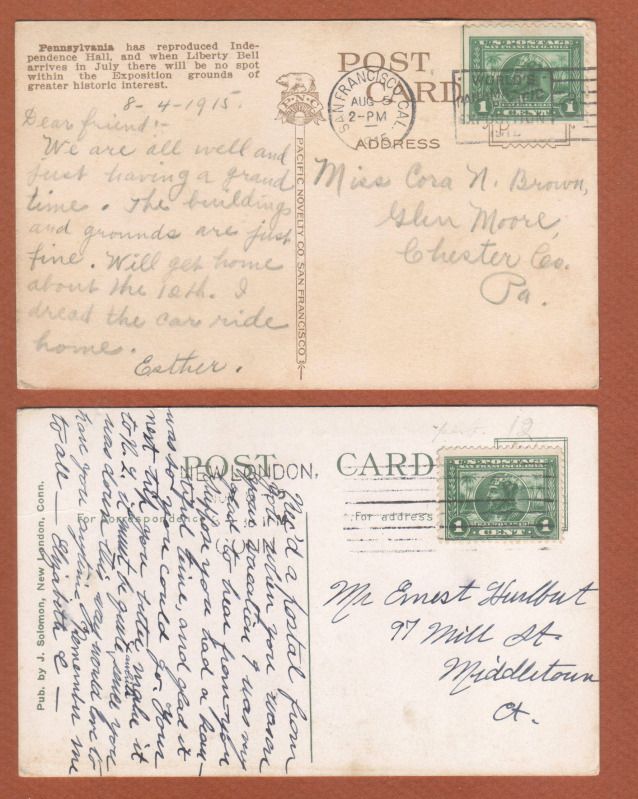 Pennsylvania has reproduced Inde-
pendence Hall, and when Liberty Bell
arrives in July there will be no spot
within the Exposition grounds of
greater historic interest.
8-4-1915.
Dear friend:-
We are all well and
just having a grand
time. The buildings
and grounds are just
fine. Will get home
about the 12th. I
dread the car ride
home.
Esther.
P.N.C.
PACIFIC NOVELTY CO. SAN FRANCISCO
POST CARD
ADDRESS
SAN FRANCISCO, CAL.
AUG 5
2-PM
WORLD'S
U.S. POSTAGE
SAN FRANCISCO 1915
1 CENT 1
Miss Cora N. Brown,
Glen Moore,
Chester Co.
Pa.
Pub. by J. Solomon, New London, Conn.
POST CARD
NEW LONDON,
For correspondence
For address
12
U.S. POSTAGE
SAN FRANCISCO 1915
1 CENT 1
a postal from
you when you were
vacation & was
to hear from you
you had a
time, and glad it
was so you could go. Your
not
to N. L. it must be quite
was down this way would love to
have you Remember me
to all —
Mr Ernest Hurlbut
97 Mill St.
Middletown
Ct.